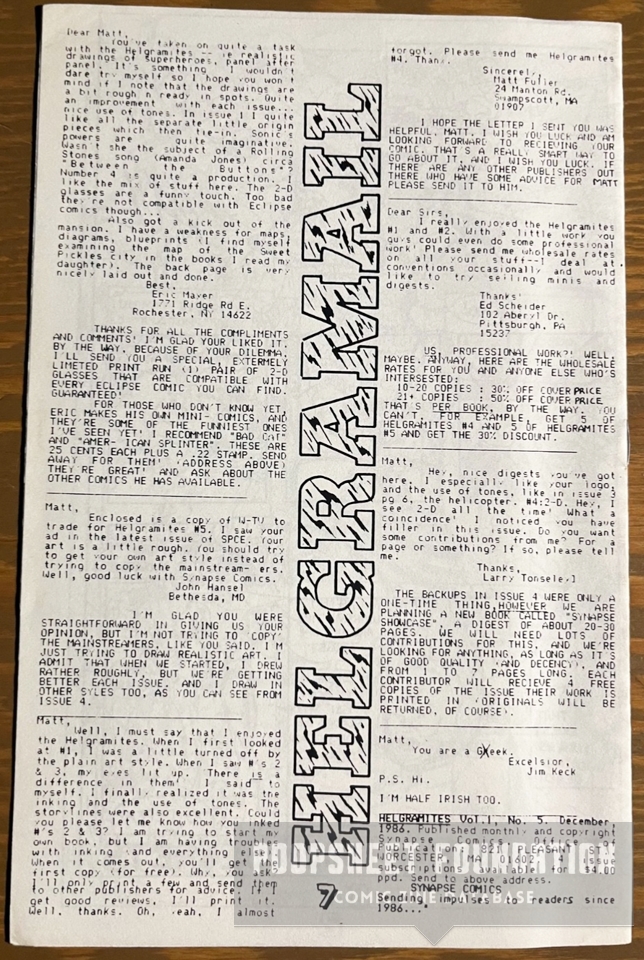 Dear Matt,
You've taken on quite a task
with the Helgramites -- ie realistic
drawings of superheroes, panel after
panel. It's something I wouldn't
dare try myself so I hope you won't
mind if I note that the drawings are
a bit rough n ready in spots. Quite
an improvement with each issue...
nice use of tones. In issue 11 quite
like all the separate little origin
pieces which then tie-in. Sonic's
powers are quite imaginative.
Wasn't she the subject of a Rolling
Stones song (Amanda Jones) circa
"Between the Buttons"?
Number 4 is quite a production. I
like the mix of stuff here. The 2-D
glasses are a funny touch. Too bad
they're not compatible with Eclipse
comics though...
Also got a kick out of the
mansion. I have a weakness for maps,
diagrams, blueprints (I find myself
examining the map of the Sweet
Pickles city in the books I read my
daughter). The back page is very
nicely laid out and done.
Best,
Eric Mayer
1771 Ridge Rd E.
Rochester, NY 14622
THANKS FOR ALL THE COMPLIMENTS
AND COMMENTS! I'M GLAD YOUR LIKED IT.
BY THE WAY, BECAUSE OF YOUR DILEMMA,
I'LL SEND YOU A SPECIAL, EXTERMELY
LIMETED PRINT RUN (1) PAIR OF 2-D
GLASSES THAT ARE COMPATIBLE WITH
EVERY ECLIPSE COMIC YOU CAN FIND.
GUARANTEED!
FOR THOSE WHO DON'T KNOW YET,
ERIC MAKES HIS OWN MINI- COMICS, AND
THEY'RE SOME OF THE FUNNIEST ONES
I'VE SEEN YET! I RECOMMEND "BAD CAT"
AND "AMER- ICAN SPLINTER". THESE ARE
25 CENTS EACH PLUS A .22 STAMP. SEND
AWAY FOR THEM! (ADDRESS ABOVE)
THEY'RE GREAT! AND ASK ABOUT THE
OTHER COMICS HE HAS AVAILABLE.
Matt,
Enclosed is a copy of W-TV to
trade for Helgramites #5. I saw your
ad in the latest issue of SPCE. Your
art is a little rough. You should try
to get your own art style instead of
trying to copy the mainstream- ers.
Well, good luck with Synapse Comics.
John Hansel
Bethesda, MD
I'M GLAD YOU WERE
STRAIGHTFORWARD IN GIVING US YOUR
OPINION, BUT I'M NOT TRYING TO 'COPY'
THE MAINSTREAMERS, LIKE YOU SAID. I'M
JUST TRYING TO DRAW REALISTIC ART. I
ADMIT THAT WHEN WE STARTED, I DREW
RATHER ROUGHLY, BUT WE'RE GETTING
BETTER EACH ISSUE. AND I DRAW IN
OTHER SYLES TOO, AS YOU CAN SEE FROM
ISSUE 4.
Matt,
Well, I must say that I enjoyed
the Helgramites. When I first looked
at #1, I was a little turned off by
the plain art style. When I saw #'s 2
& 3, my eyes lit up. There is a
difference in them! I said to
myself. I finally realized it was the
inking and the use of tones. The
storylines were also excellent. Could
you please let me know how you inked
#'s 2 & 3? I am trying to start my
own book, but I am having trouble
with inking and everything else.
When it comes out, you'll get the
first copy (for free). Why, you ask
I'll only print a few and send them
to other publishers for advice. If I
get good reviews, I'll print it.
Well, thanks. Oh, yeah, I almost
HELGRAMAIL
7
forgot. Please send me Helgramites
#4. Thanx.
Sincerely,
Matt Fuller
24 Manton Rd.
Swampscott, MA
01907
I HOPE THE LETTER I SENT YOU WAS
HELPFUL, MATT. I WISH YOU LUCK AND AM
LOOKING FORWARD TO RECIEVING YOUR
COMIC. THAT'S A REALLY SMART WAY TO
GO ABOUT IT, AND I WISH YOU LUCK. IF
THERE ARE ANY OTHER PUBLISHERS OUT
THERE WHO HAVE SOME ADVICE FOR MATT
PLEASE SEND IT TO HIM.
Dear Sirs,
I really enjoyed the Helgramites
#1 and #2. With a little work you
guys could even do some professional
work! Please send me wholesale rates
on all your stuff--I deal at
conventions occasionally and would
like to try selling minis and
digests.
Thanks!
Ed Scheider
102 Aberyl Dr.
Pittsburgh, PA
15237
US, PROFESSIONAL WORK?! WELL,
MAYBE. ANYWAY, HERE ARE THE WHOLESALE
RATES FOR YOU AND ANYONE ELSE WHO'S
INTERSESTED:
10-20 COPIES : 30% OFF COVER PRICE
21+ COPIES : 50% OFF COVER PRICE
THAT'S PER BOOK, BY THE WAY. YOU
CAN'T, FOR EXAMPLE, GET 5 OF
HELGRAMITES #4 AND 5 OF HELGRAMITES
#5 AND GET THE 30% DISCOUNT.
Matt,
Hey, nice digests you've got
here. I especially like your logo,
and the use of tones, like in issue 3
pg 6, the helicopter. #4:2-D. Hey, I
see 2-D all the time! What a
coincidence! I noticed you have
filler in this issue. Do you want
some contributions from me? For a
page or something? If so, please tell
me.
Thanks,
Larry Tonseley
THE BACKUPS IN ISSUE 4 WERE ONLY A
ONE-TIME THING, HOWEVER WE ARE
PLANNING A NEW BOOK CALLED "SYNAPSE
SHOWCASE", A DIGEST OF ABOUT 20-30
PAGES. WE WILL NEED LOTS OF
CONTRIBUTIONS FOR THIS, AND WE'RE
LOOKING FOR ANYTHING, AS LONG AS IT'S
OF GOOD QUALITY (AND DECENCY), AND
FROM 1 TO 7 PAGES LONG. EACH
CONTRIBUTOR WILL RECIEVE 4 FREE
COPIES OF THE ISSUE THEIR WORK IS
PRINTED IN (ORIGINALS WILL BE
RETURNED, OF COURSE).
Matt,
You are a GXeek.
Excelsior,
Jim Keck
P.S. Hi.
I'M HALF IRISH TOO.
HELGRAMITES Vol.1, No. 5. December,
1986. Published monthly and copyright
Synapse Comics.
Published at 821 PLEASANT ST.
WORCESTER, MA 01602. issue
subscriptions available for $4.00
ppd. Send to above address.
SYNAPSE COMICS
Sending impulses to readers since
1986...
HOOPSHEET FOUNDATION
COMIC DATABASE